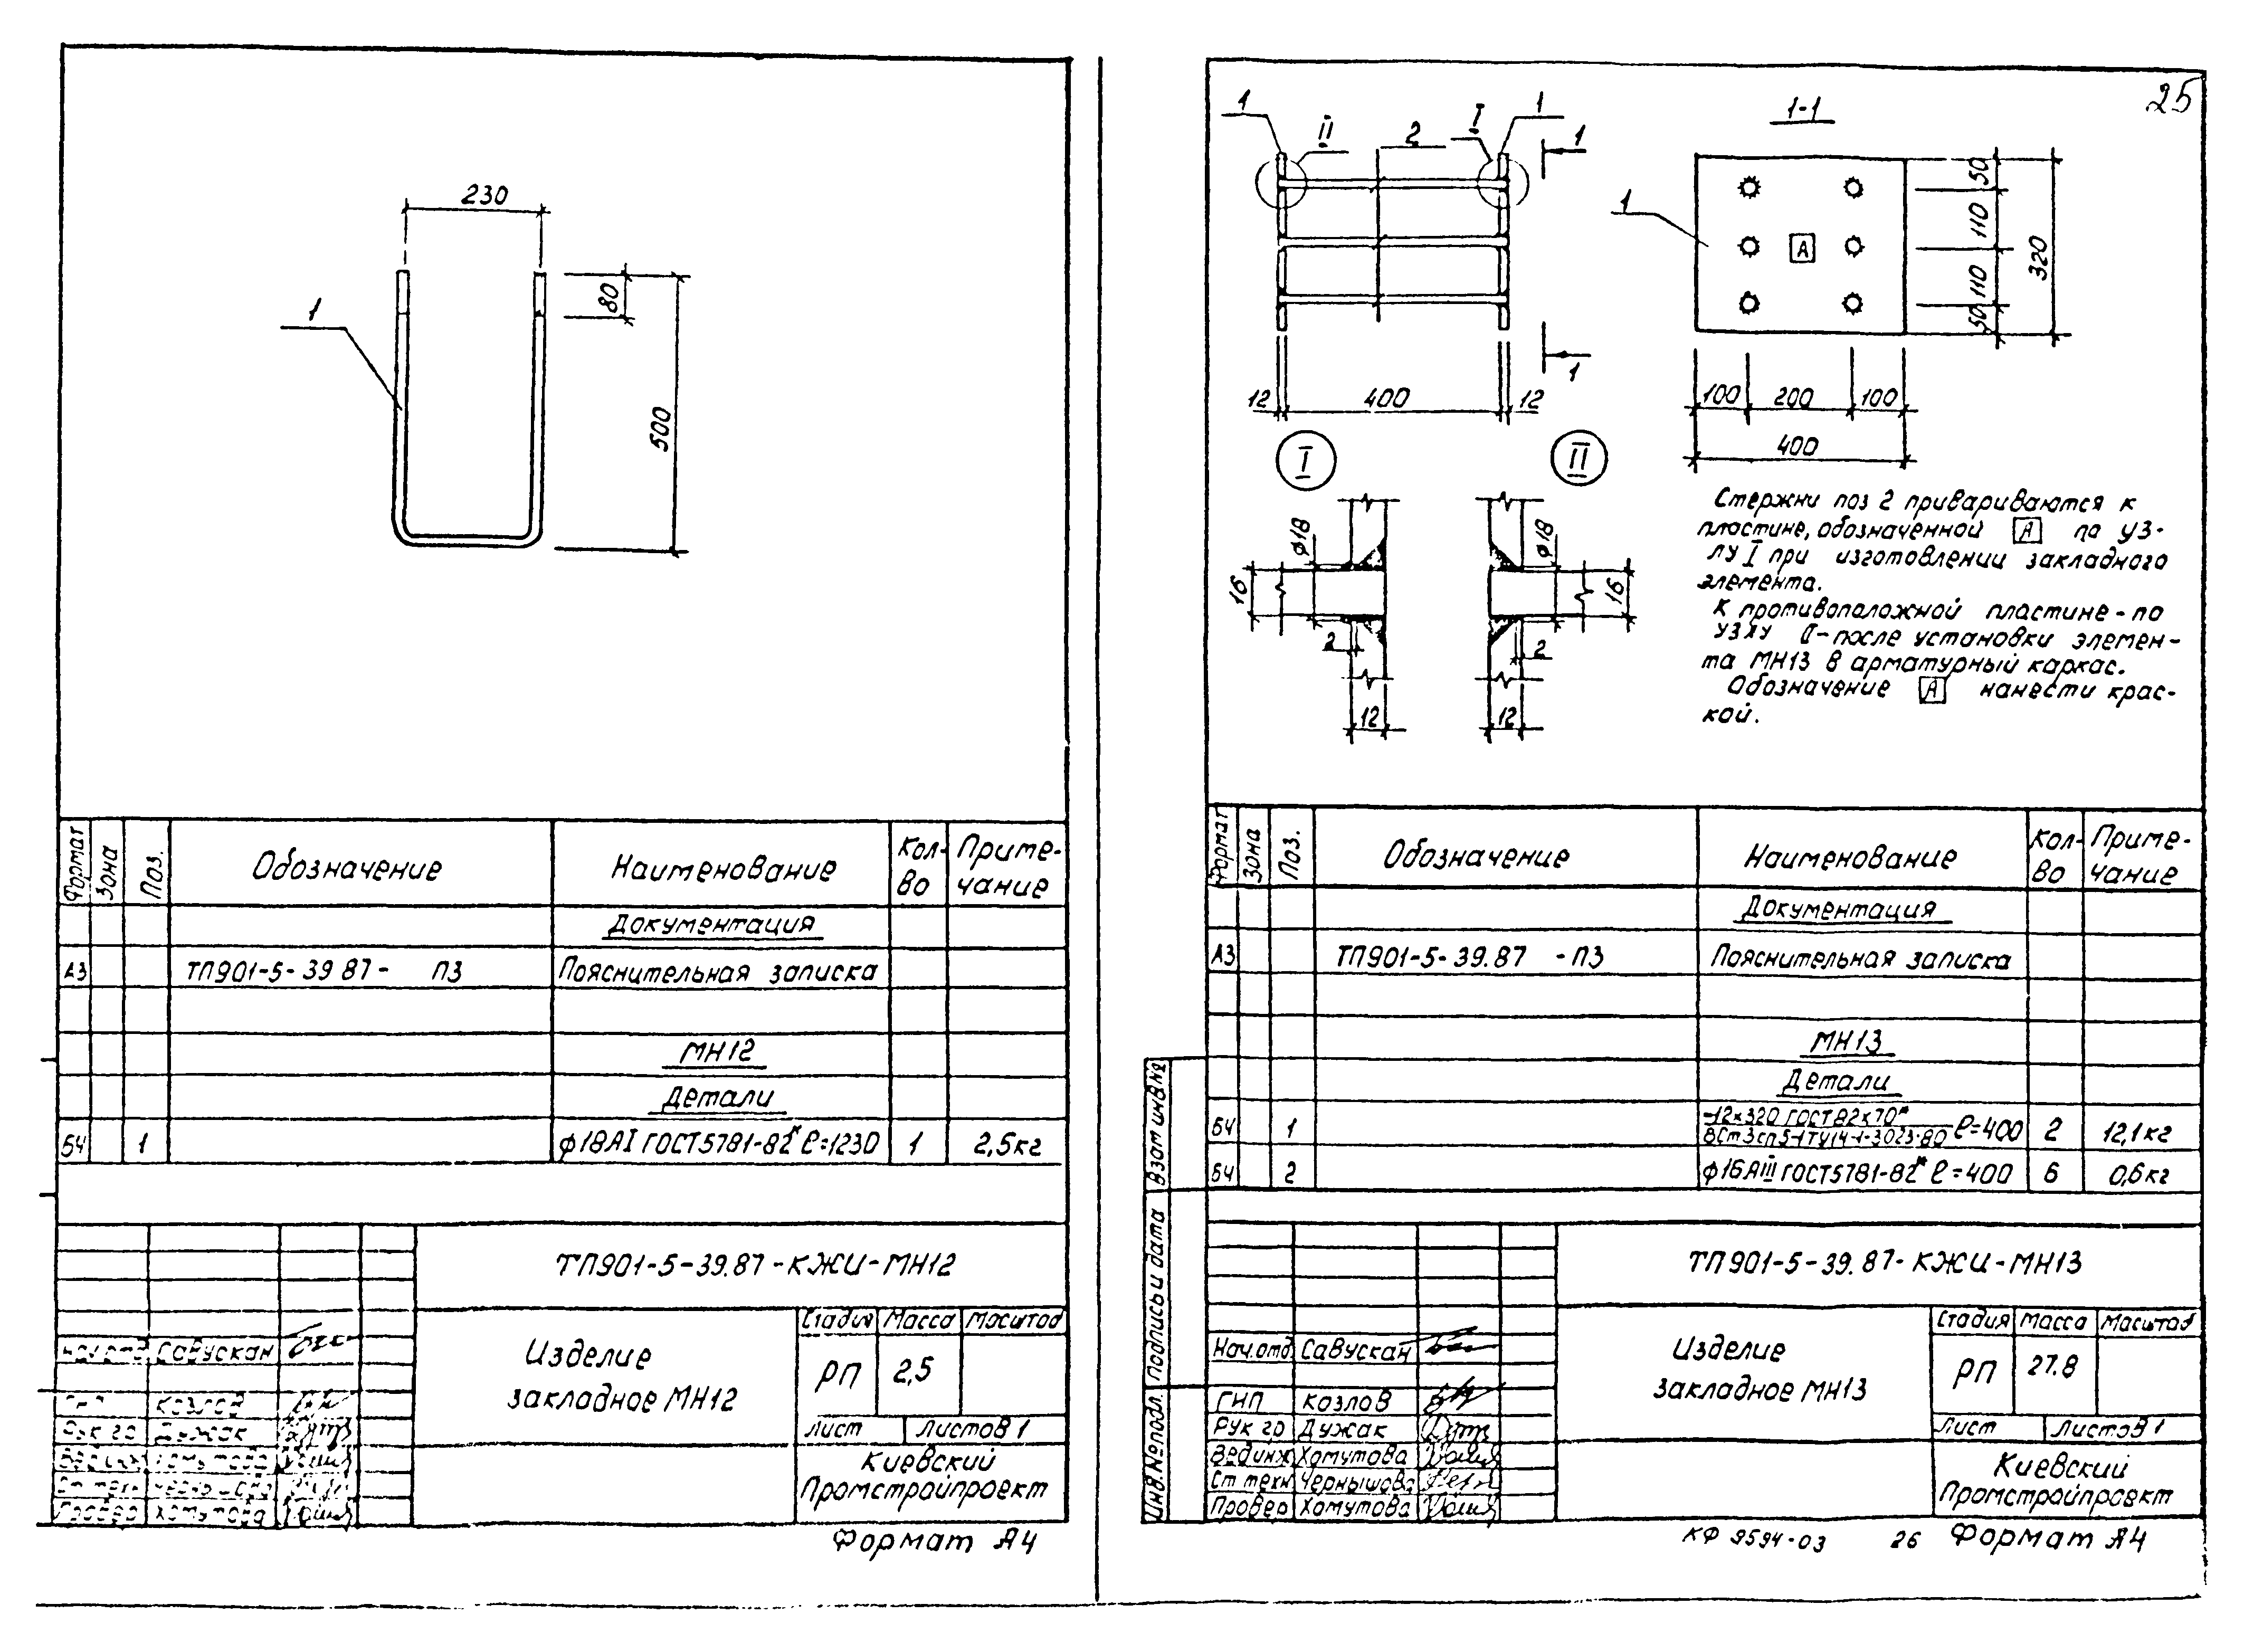 230
80
500
1
Формат
Зона
Поз.
Обозначение
Наименование
Кол-во
Приме-чание
Документация
А3 ТП901-5-39 87- ПЗ Пояснительная записка
МН12
Детали
БЧ 1 ф18АI ГОСТ5781-82* ℓ=1230 1 2,5кг
ТП901-5-39.87-КЖИ-МН12
Изделие
закладное МН12
Стадия Масса Масштаб
РП 2,5
Лист Листов 1
Киевский
Промстройпроект
Нач отд Савускан
Козлов
Рук гр Дужак
Провер Хомутова
Формат А4
25
1 II 2 I 1 1
12 400 12
1
1-1
1
А
50
110
110
50
320
100 200 100
400
I
II
ф18
16
2
12
ф18
16
2
12
Стержни поз 2 привариваются к
пластине, обозначенной А по уз-
лу I при изготовлении закладного
элемента.
К противоположной пластине-по
узлу II-после установки элемен-
та МН13 в арматурный каркас.
Обозначение А нанести крас-
кой.
Формат
Зона
Поз.
Обозначение
Наименование
Кол-во
Приме-чание
Документация
А3 ТП901-5-39.87 -ПЗ Пояснительная записка
МН13
Детали
БЧ 1 -12х320 ГОСТ82х70* ℓ=400 2 12,1кг
ВСт3сп5-1ТУ14-1-3023-80
БЧ 2 ф16АIII ГОСТ5781-82* ℓ=400 6 0,6кг
Взам инв №
Подпись и дата
Инв.№подл.
ТП901-5-39.87-КЖИ-МН13
Изделие
закладное МН13
Стадия Масса Масштаб
РП 27.8
Лист Листов 1
Киевский
Промстройпроект
Нач.отд. Савускан
ГИП Козлов
Рук гр Дужак
Вединж Хомутова
Ст техн Чернышова
Провер Хомутова
КФ 9594-03 26 Формат А4